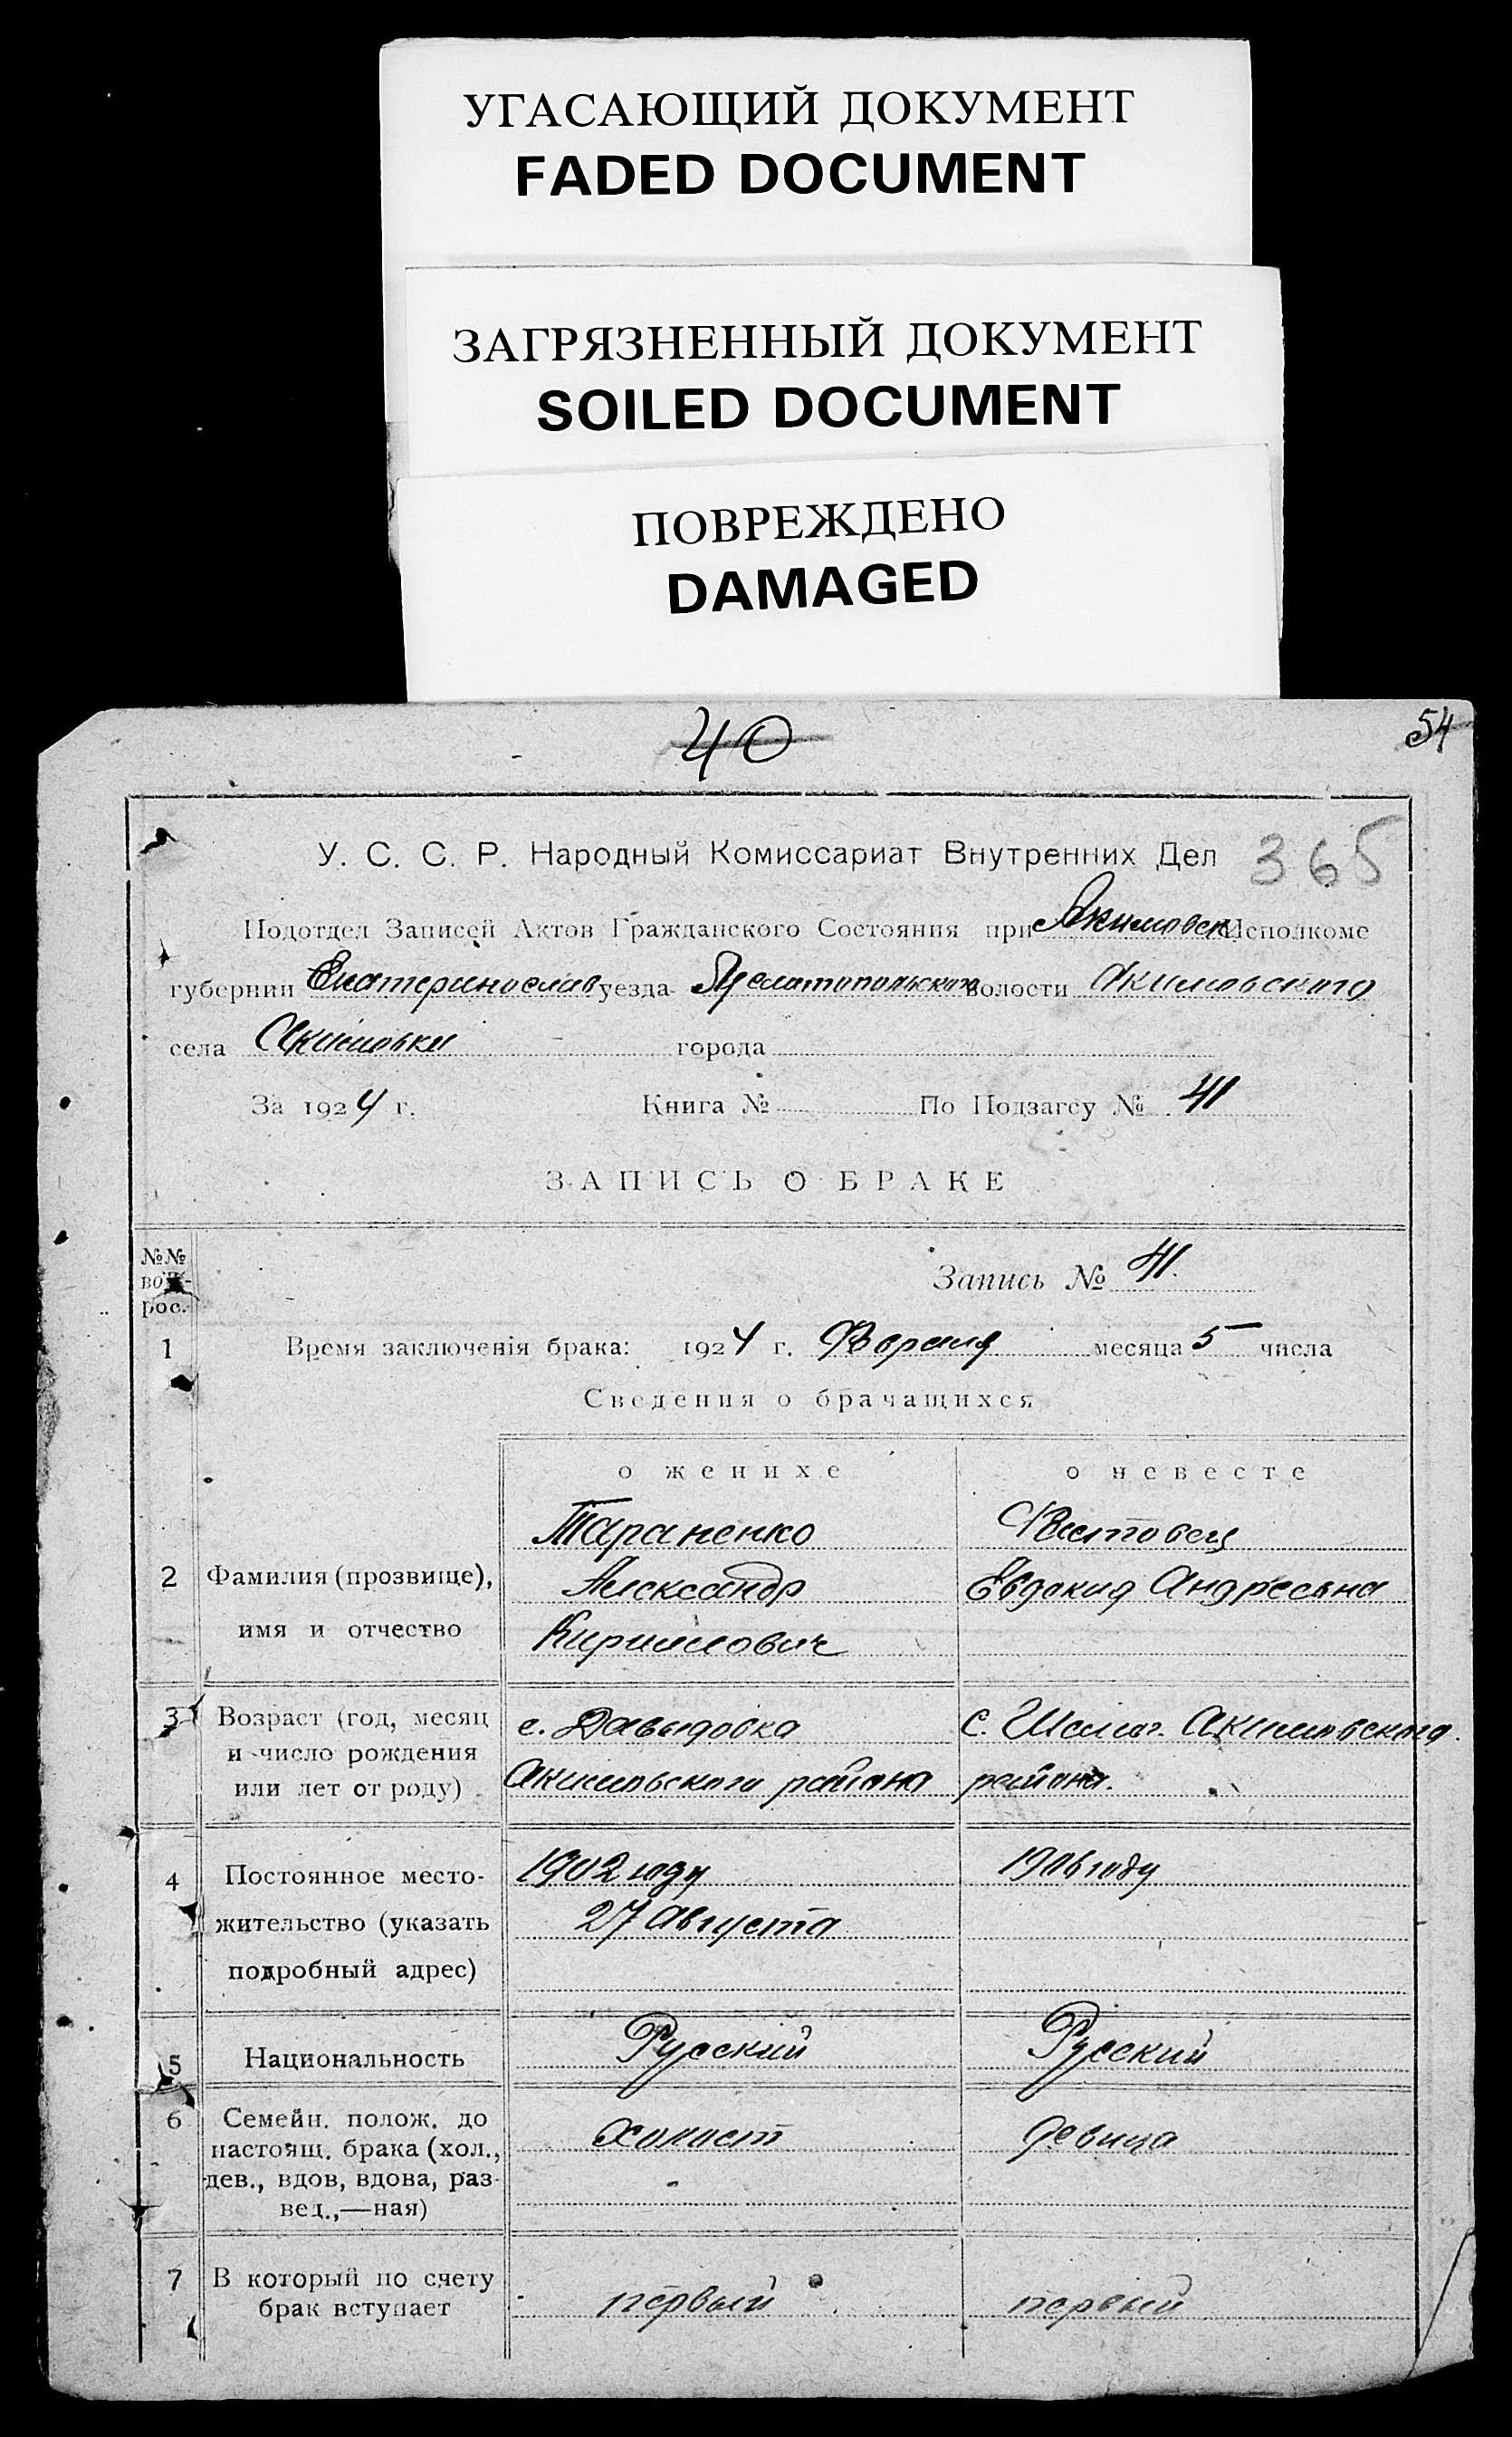 УГАСАЮЩИЙ ДОКУМЕНТ
FADED DOCUMENT
ЗАГРЯЗНЕННЫЙ ДОКУМЕНТ
SOILED DOCUMENT
ПОВРЕЖДЕНО
DAMAGED
40
54
У. С. С. Р. Народный Комиссариат Внутренних Дел 365
Подотдел Записей Актов Гражданского Состояния при Акимовск Исполкоме
губернии Екатеринослав уезда волости Акимовского
села Акимовки города
За 1924 г. Книга № По Подзагсу № 41
ЗАПИСЬ О БРАКЕ
№№
воп-
рос.
Запись № 41.
1 Время заключенія брака: 1924 г. месяца 5 числа
Сведения о брачащихся
о женихе о невесте
2 Фамилия (прозвище),
имя и отчество
Тараненко
Александр
Кириллович
Евдокия Андреевна
3 Возраст (год, месяц
и число рождения
или лет от роду)
с. Давыдовка
Акимовского района
с. Акимовского
района.
4 Постоянное место-
жительство (указать
подробный адрес)
1902 году
27 Августа
1906 году
5 Национальность Русский Русский
6 Семейн. полож. до
настоящ. брака (хол.,
дев., вдов, вдова, раз-
вед.,—ная)
холост девица
7 В который по счету
брак вступает
первый первый